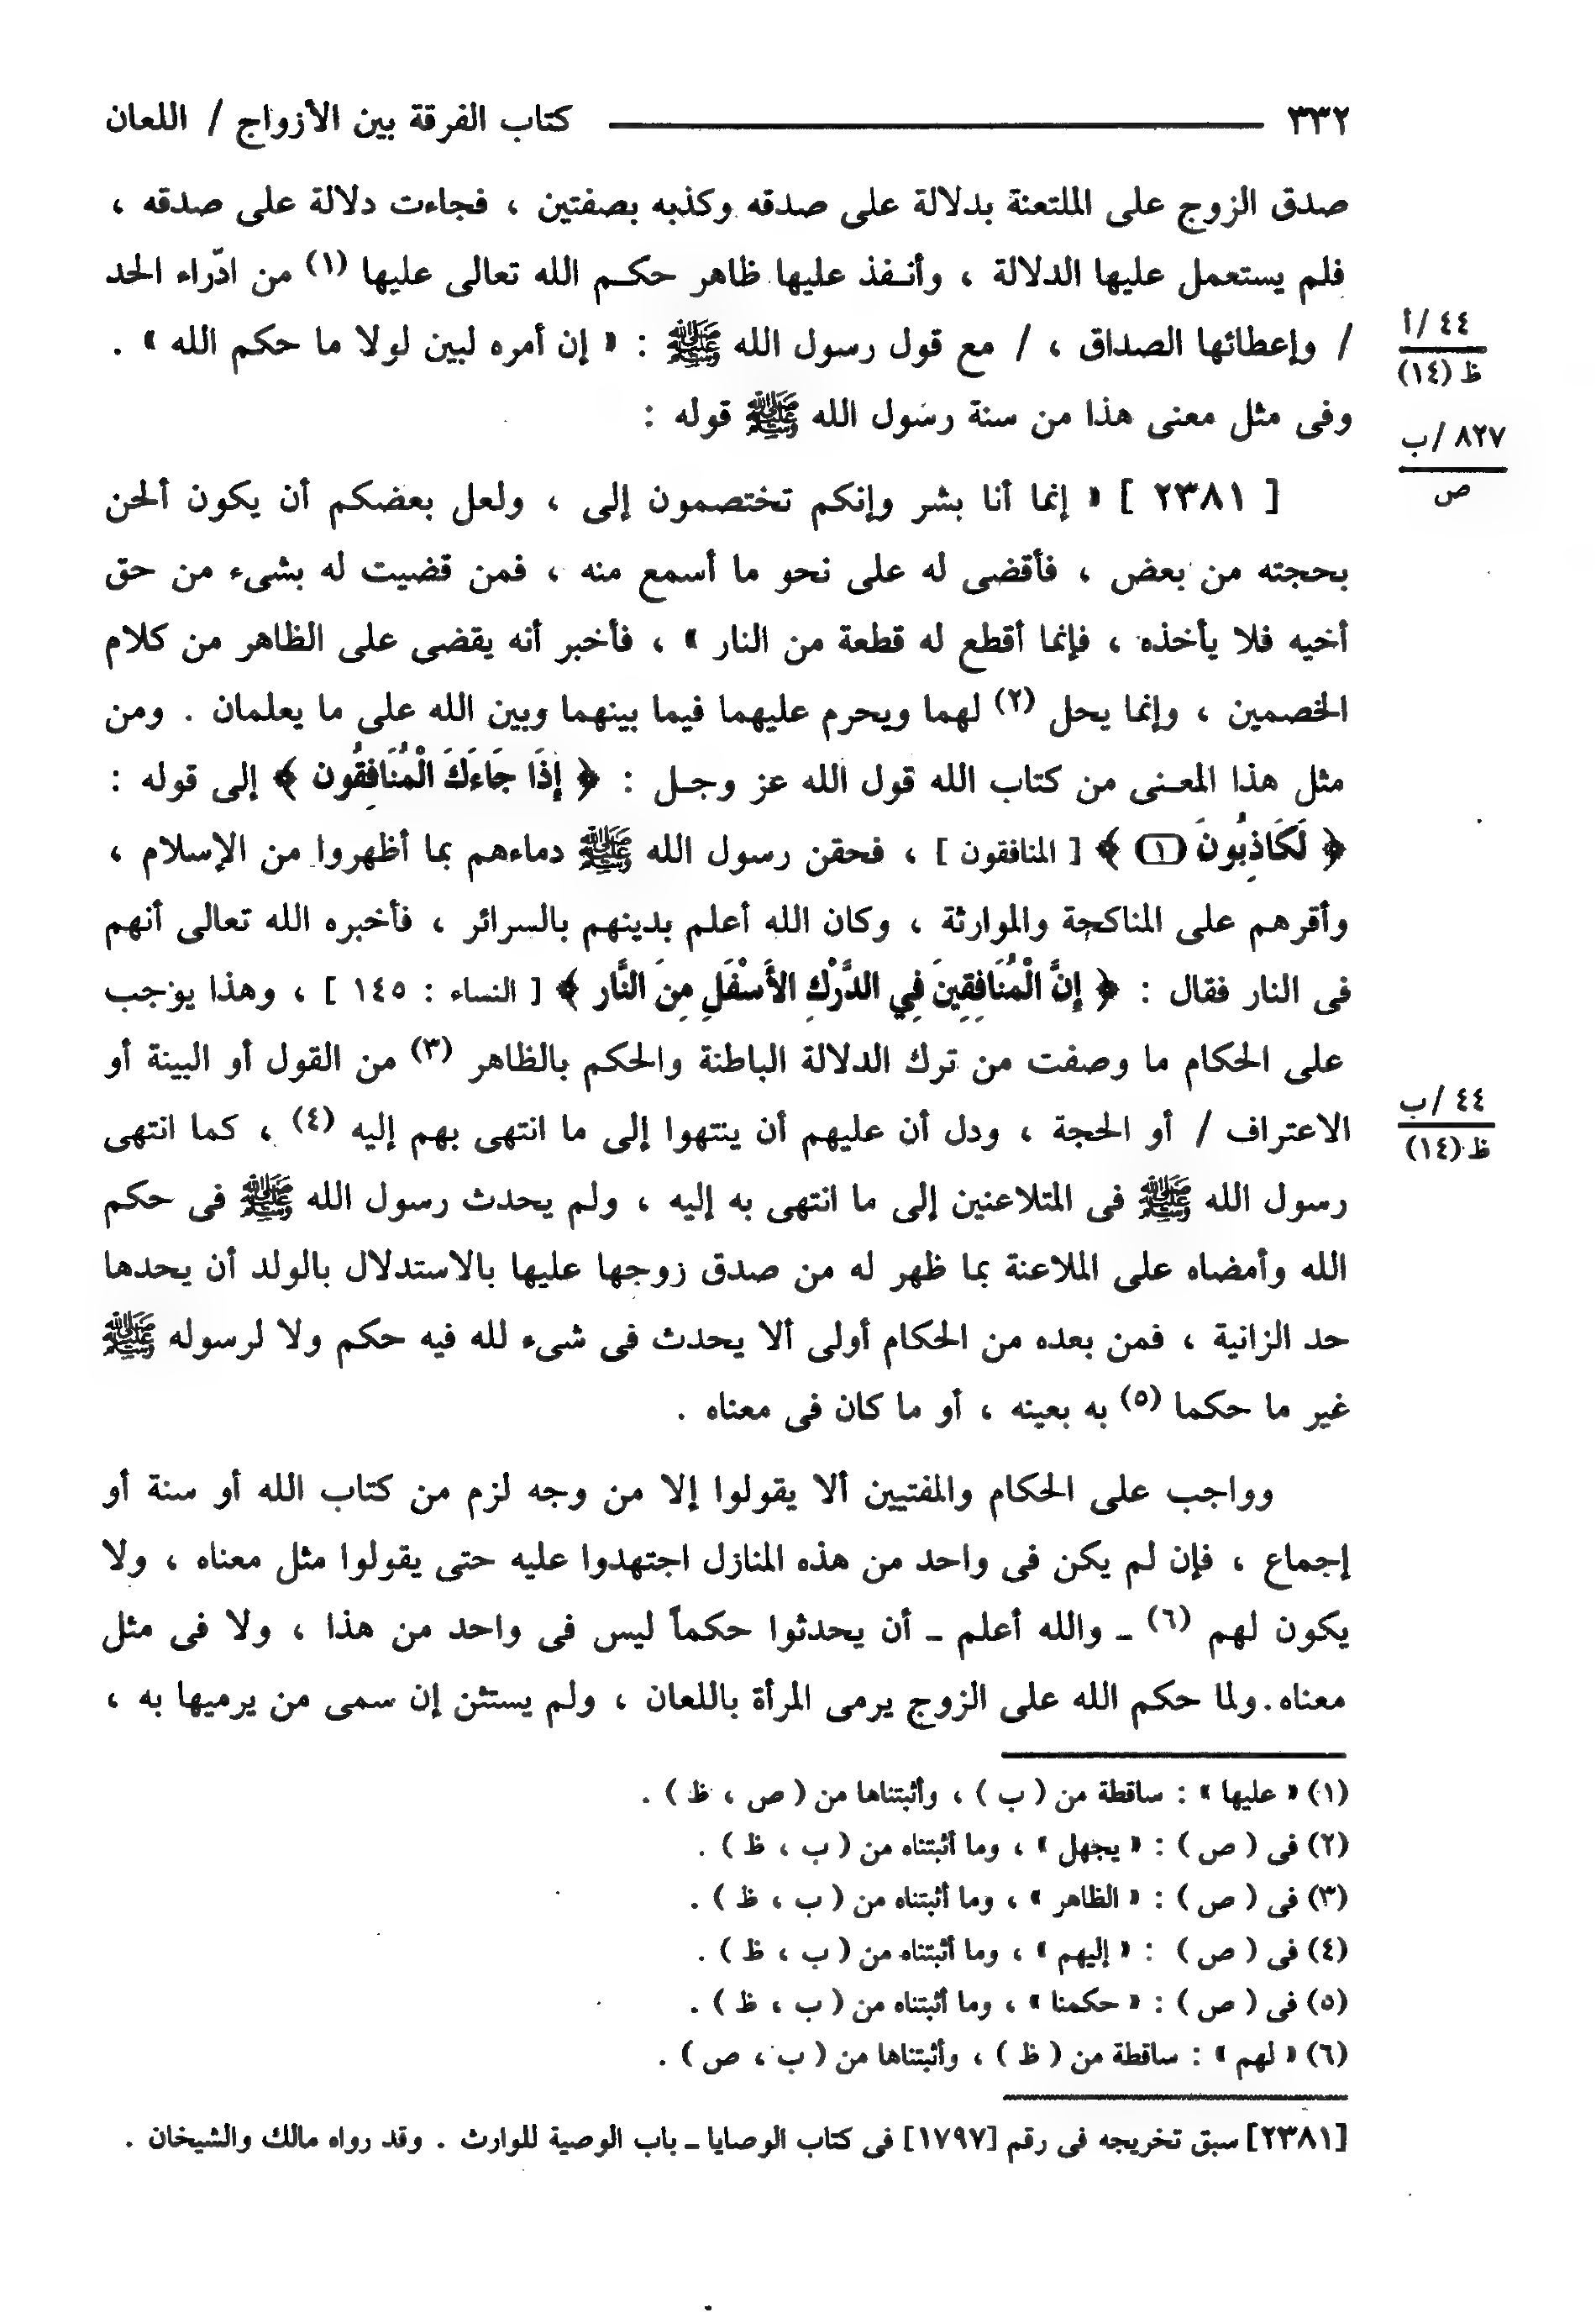 ٣٣٢ كتاب الفرقة بين الأزواج / اللعان
صدق الزوج على الملتعنة بدلالة على صدقه وكذبه بصفتين ، فجاءت دلالة على صدقه ،
فلم يستعمل عليها الدلالة ، وأنـفذ عليها ظاهر حكـم الله تعالى عليها (١) من ادّراء الحد
/ وإعطائها الصداق ، / مع قول رسول الله ﷺ : « إن أمره لبين لولا ما حكم الله » .
٤٤ /أ
ظ (١٤)
وفى مثل معنى هذا من سنة رسول الله ﷺ قوله :
٨٢٧ /ب
ص
[ ٢٣٨١ ] « إنما أنا بشر وإنكم تختصمون إلى ، ولعل بعضكم أن يكون ألحن
بحجته من بعض ، فأقضى له على نحو ما أسمع منه ، فمن قضيت له بشىء من حق
أخيه فلا يأخذه ، فإنما أقطع له قطعة من النار » ، فأخبر أنه يقضى على الظاهر من كلام
الخصمين ، وإنما يحل (٢) لهما ويحرم عليهما فيما بينهما وبين الله على ما يعلمان . ومن
مثل هذا المعـنى من كتاب الله قول الله عز وجـل : ﴿ إِذَا جَاءَكَ الْمُنَافِقُون ﴾ إلى قوله :
﴿ لَكَاذِبُونَ (١) ﴾ [ المنافقون ] ، فحقن رسول الله ﷺ دماءهم بما أظهروا من الإسلام ،
وأقرهم على المناكحة والموارثة ، وكان الله أعلم بدينهم بالسرائر ، فأخبره الله تعالى أنهم
فى النار فقال : ﴿ إِنَّ الْمُنَافِقِينَ فِي الدَّرْكِ الأَسْفَلِ مِنَ النَّار ﴾ [ النساء : ١٤٥ ] ، وهذا يوجب
على الحكام ما وصفت من ترك الدلالة الباطنة والحكم بالظاهر (٣) من القول أو البينة أو
الاعتراف / أو الحجة ، ودل أن عليهم أن ينتهوا إلى ما انتهى بهم إليه (٤) ، كما انتهى
٤٤ /ب
ظ (١٤)
رسول الله ﷺ فى المتلاعنين إلى ما انتهى به إليه ، ولم يحدث رسول الله ﷺ فى حكم
الله وأمضاه على الملاعنة بما ظهر له من صدق زوجها عليها بالاستدلال بالولد أن يحدها
حد الزانية ، فمن بعده من الحكام أولى ألا يحدث فى شىء لله فيه حكم ولا لرسوله ﷺ
غير ما حكما (٥) به بعينه ، أو ما كان فى معناه .
وواجب على الحكام والمفتيين ألا يقولوا إلا من وجه لزم من كتاب الله أو سنة أو
إجماع ، فإن لم يكن فى واحد من هذه المنازل اجتهدوا عليه حتى يقولوا مثل معناه ، ولا
يكون لهم (٦) ـ والله أعلم ـ أن يحدثوا حكماً ليس فى واحد من هذا ، ولا فى مثل
معناه . ولما حكم الله على الزوج يرمى المرأة باللعان ، ولم يستثن إن سمى من يرميها به ،
(١) « عليها » : ساقطة من ( ب ) ، وأثبتناها من ( ص ، ظ ) .
(٢) فى ( ص ) : « يجهل » ، وما أثبتناه من ( ب ، ظ ) .
(٣) فى ( ص ) : « الظاهر » ، وما أثبتناه من ( ب ، ظ ) .
(٤) فى ( ص ) : « إليهم » ، وما أثبتناه من ( ب ، ظ ) .
(٥) فى ( ص ) : « حكمنا » ، وما أثبتناه من ( ب ، ظ ) .
(٦) « لهم » : ساقطة من ( ظ ) ، وأثبتناها من ( ب ، ص ) .
[٢٣٨١] سبق تخريجه فى رقم [١٧٩٧] فى كتاب الوصايا ـ باب الوصية للوارث . وقد رواه مالك والشيخان .